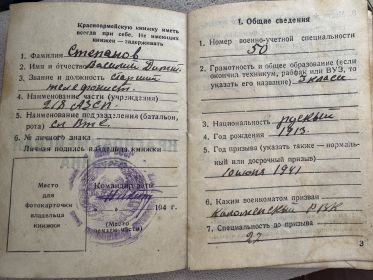 Красноармейскую книжку иметь
всегда при себе. Не имеющих
книжек — задерживать
1. Фамилия Степанов
2. Имя и отчество Василий
3. Звание и должность старший
телефонист
4. Наименование части (учреждения)
218 АЗСП
5. Наименование подразделения (батальон,
рота)
6. № личного знака
Личная подпись владельца книжки
Место
для
фотокарточки
владельца
книжки
Командир роты
194 г.
(Место
печати части)
1. Общие сведения
1. Номер военно-учетной специальности
50
2. Грамотность и общее образование (если
окончил техникум, рабфак или ВУЗ, то
указать его название) 3 класс
3. Национальность русский
4. Год рождения 1913
5. Год призыва (указать также — нормаль-
ный или досрочный призыв)
10 июня 1941
6. Каким военкоматом призван
Коломенский РВК
7. Специальность до призыва
22
3